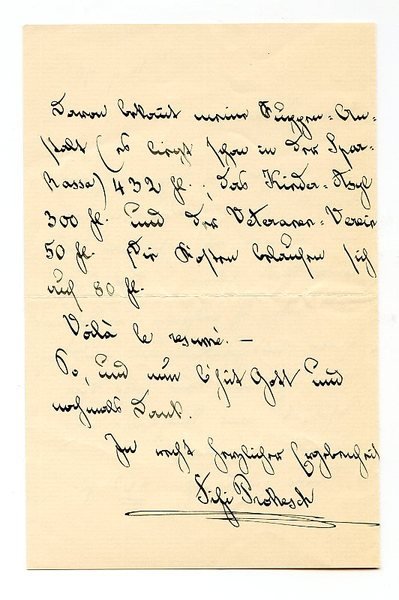 Davon bekommt meine Suppen-An-
stalt (es liegt schon in der Spar-
kassa) 432 fl., das Kinder-Asyl
300 fl. und der Veteranen-Verein
50 fl. Die Kosten belaufen sich
auf 80 fl.
Voilà le resumé. —
So, und nun b'hüt Gott und
nochmals Dank.
In recht herzlicher Ergebenheit
Fifi Prokesch